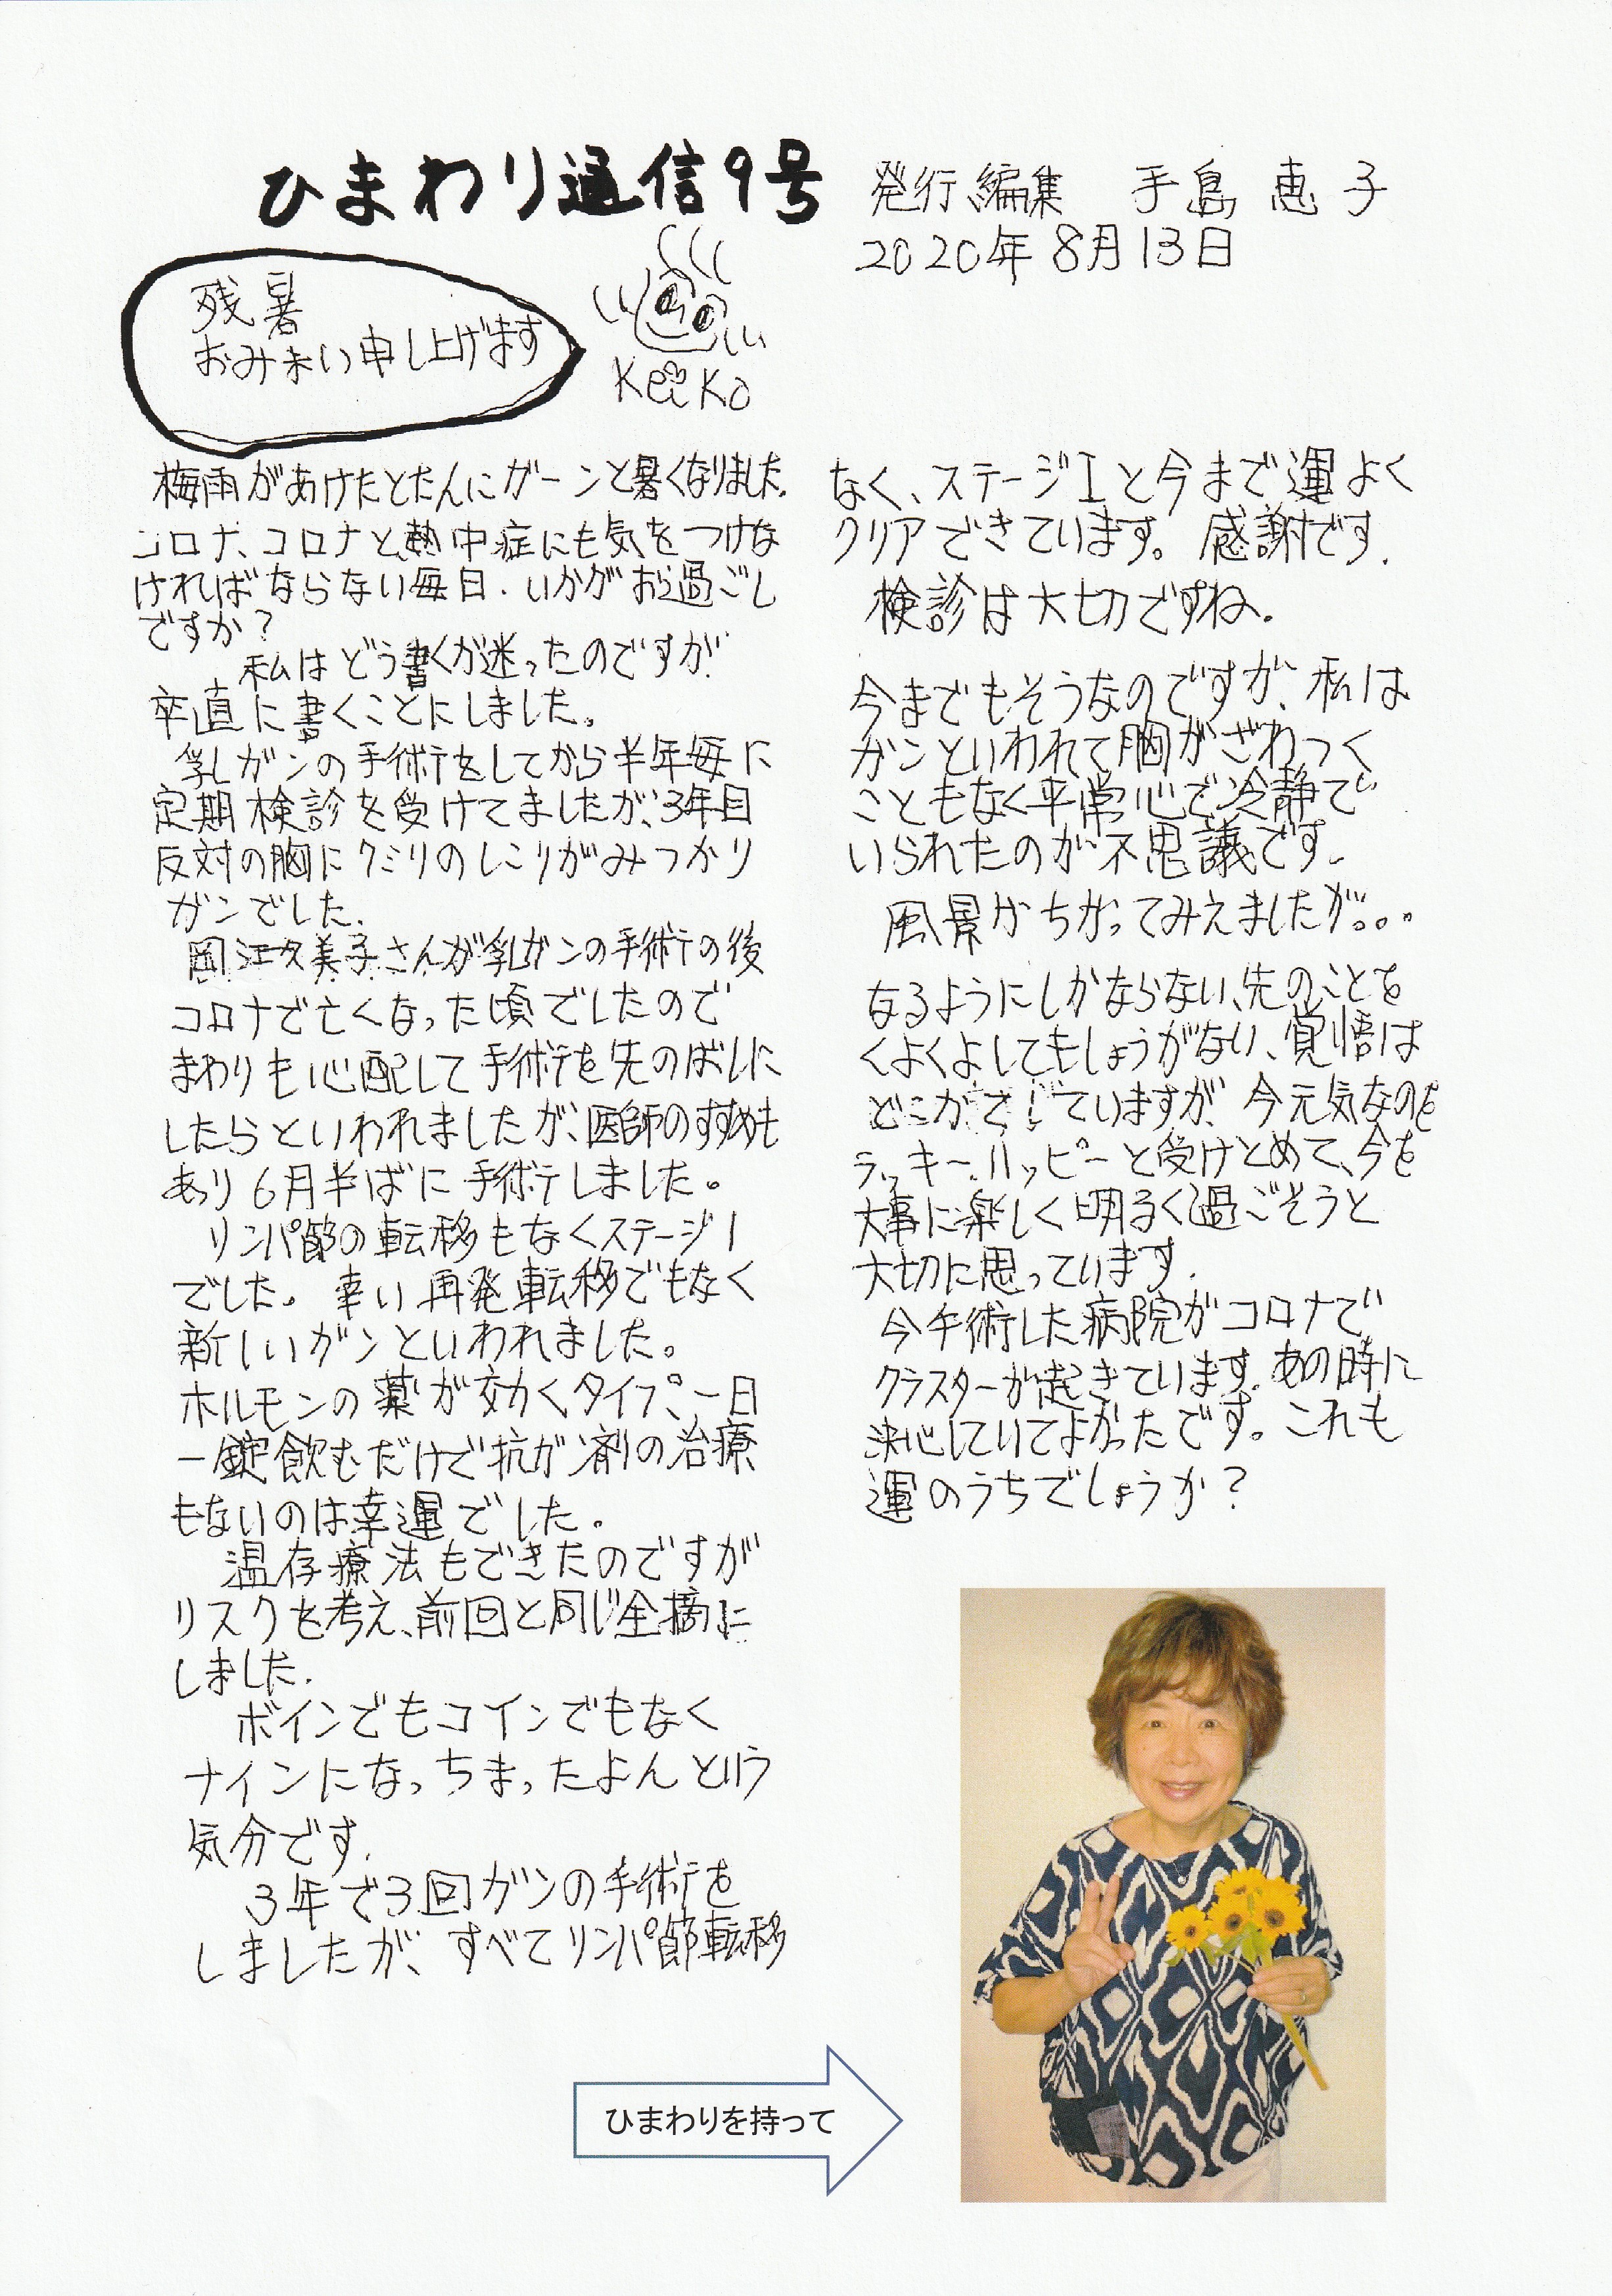 ひまわり通信9号
発行編集 手島 恵子
2020年8月13日
残暑
おみまい申し上げます
Keiko
梅雨があけたとたんにガーンと暑くなりました。
コロナ、コロナと、熱中症にも気をつけな
ければならない毎日.いかがお過ごし
ですか?
私はどう書くが迷ったのですが
卒直に書くことにしました。
乳ガンの手術をしてから半年毎に
定期検診を受けてましたが、3年目
反対の胸にクミリのしこりがみつかり
ガンでした.
岡江久美子さんが乳ガンの手術の後
コロナで亡くなった頃でしたので
まわりも心配して手術を先のばしに
したらといわれましたが、医師のすすめも
あり6月半ばに手術しました。
リンパ節の転移もなくステージ1
でした。幸い再発転移でもなく
新しいガンといわれました。
ホルモンの薬が効くタイプ、一日
一錠飲むだけで抗ガン剤の治療
もないのは幸運でした。
温存療法もできたのですが
リスクを考え、前回と同じ全摘に
しました.
ボインでもコインでもなく
ナインになっちまったよんという
気分です.
3年で3回ガンの手術を
しましたが、すべてリンパ節転移
なく、ステージIと今まで運よく
クリアできています。感謝です.
検診は大切ですね。
今までもそうなのですが、私は
ガンといわれて胸がざわつく
こともなく平常心で冷静で
いられたのが不思議です.
風景がちがってみえましたが。。。
なるようにしかならない、先のことを
くよくよしてもしょうがない、覚悟は
どこかでていますが、今元気なのを
ラッキー、ハッピーと受けとめて、今を
大事に楽しく明るく過ごそうと
大切に思っています.
今手術した病院がコロナで
クラスターが起きています.あの時に
決心していてよかったです。これも
運のうちでしょうか?
ひまわりを持って